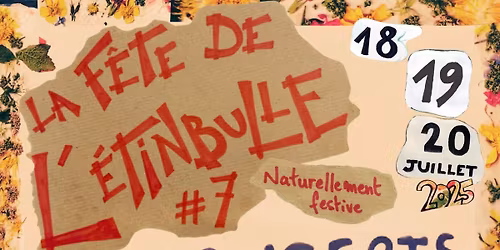 LA FÊTE DE
L'ÉTINBULLE
#7
Naturellement
festive
18
19
20
JUILLET
2025